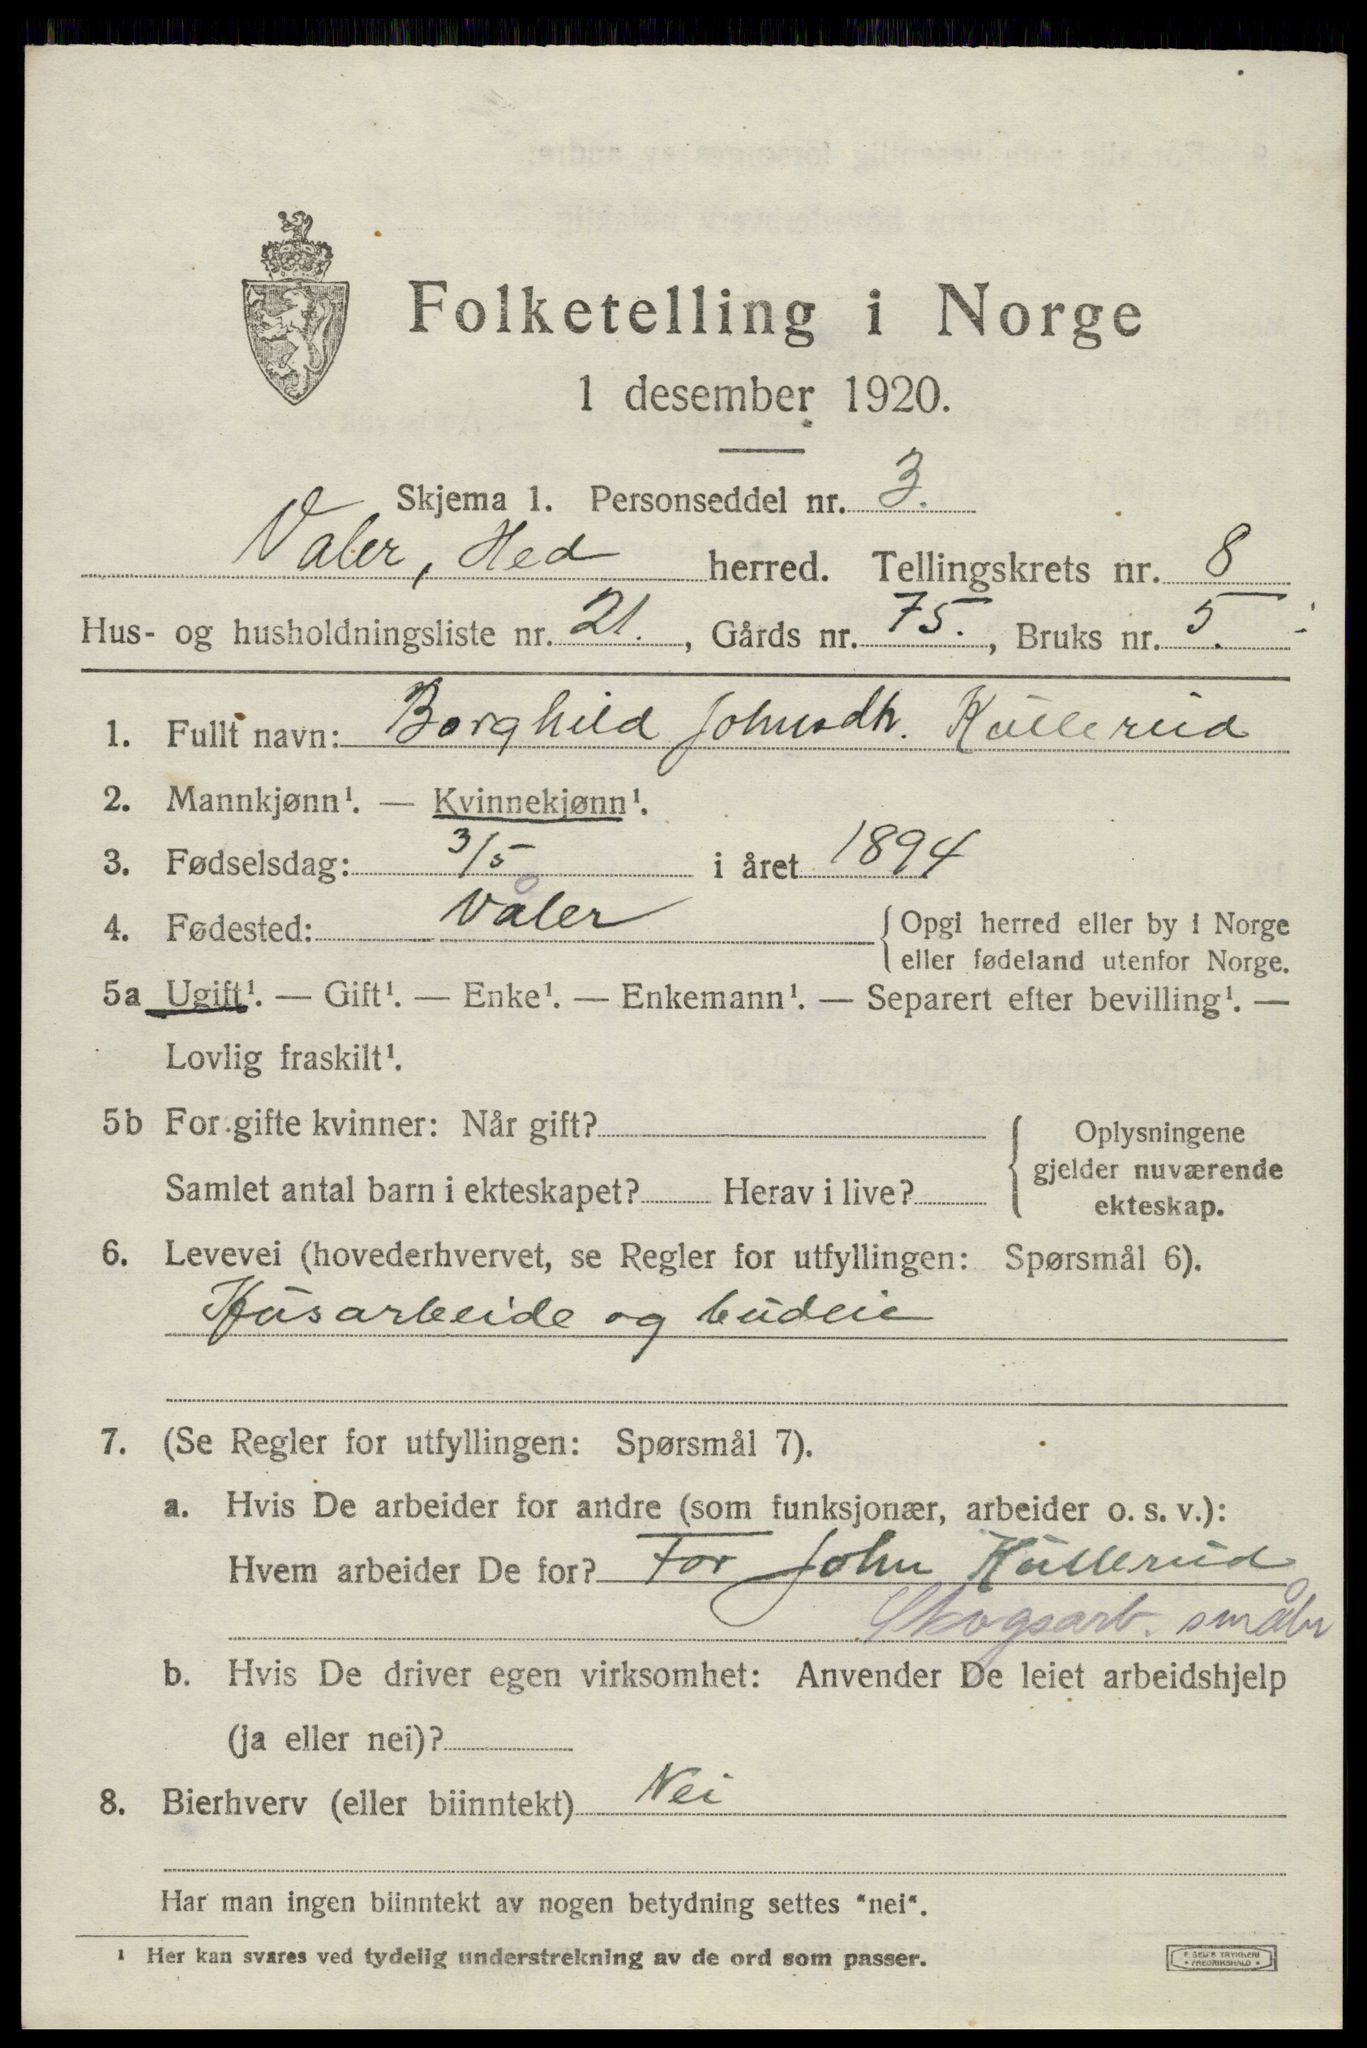 Folketelling i Norge
1 desember 1920.
Skjema 1. Personseddel nr. 3.
Valer, Hed herred. Tellingskrets nr. 8
Hus- og husholdningsliste nr. 21., Gårds nr. 75., Bruks nr. 5.
1. Fullt navn: Borghild Johnsdh. Kullerud
2. Mannkjønn¹. — Kvinnekjønn¹.
3. Fødselsdag: 3/5 i året 1894
4. Fødested: Våler {Opgi herred eller by i Norge
eller fødeland utenfor Norge.
5a Ugift¹. — Gift¹. — Enke¹. — Enkemann¹. — Separert efter bevilling¹. —
Lovlig fraskilt¹.
5b For gifte kvinner: Når gift?
Samlet antal barn i ekteskapet? Herav i live?
Oplysningene
gjelder nuværende
ekteskap.
6. Levevei (hovederhvervet, se Regler for utfyllingen: Spørsmål 6).
Husarbeide og budeie
7. (Se Regler for utfyllingen: Spørsmål 7).
a. Hvis De arbeider for andre (som funksjonær, arbeider o. s. v.):
Hvem arbeider De for? For John Kullerud
Skogsarb. småbr
b. Hvis De driver egen virksomhet: Anvender De leiet arbeidshjelp
(ja eller nei)?
8. Bierhverv (eller biinntekt) Nei
Har man ingen biinntekt av nogen betydning settes "nei".
¹ Her kan svares ved tydelig understrekning av de ord som passer.